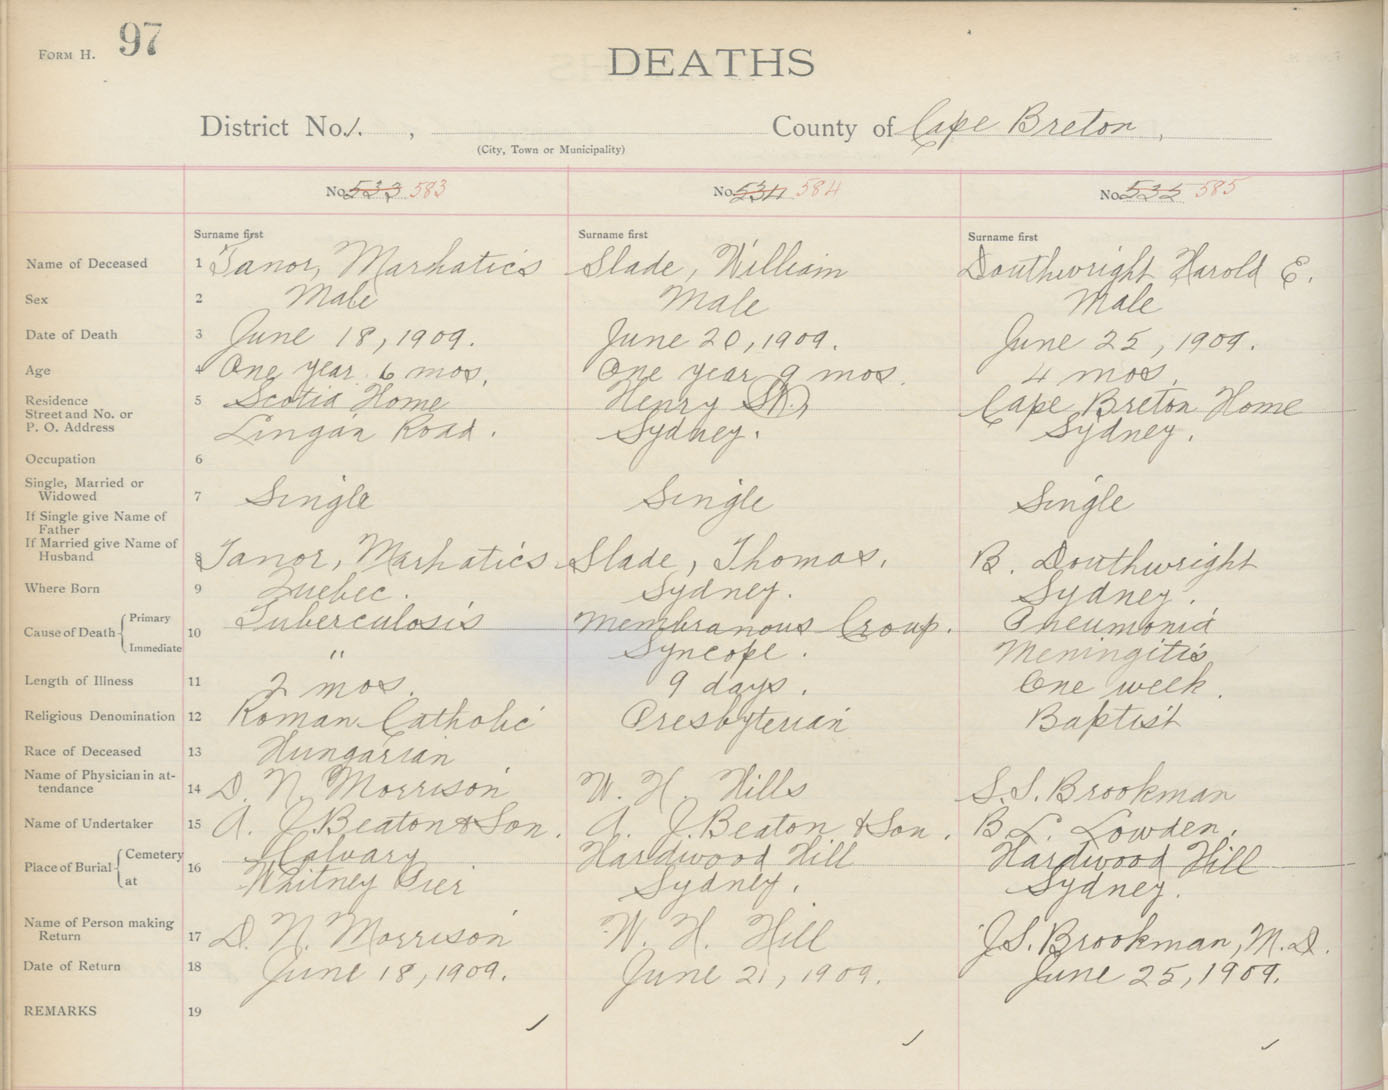 FORM H. 97
DEATHS
District No. 1. , County of Cape Breton ,
(City, Town or Municipality)
No. 533 583 No. 534 584 No. 535 585
Surname first Surname first Surname first
Name of Deceased 1 Janor, Marhatics Slade, William Douthwright Harold E.
Sex 2 Male Male Male
Date of Death 3 June 18, 1909. June 20, 1909. June 25, 1909.
Age 4 One year 6 mos. One year 9 mos. 4 mos.
Residence 5 Scotia Home Henry St. Cape Breton Home
Street and No. or
P. O. Address Lingan Road. Sydney. Sydney.
Occupation 6
Single, Married or
Widowed 7 Single Single Single
If Single give Name of
Father
If Married give Name of
Husband 8 Janor, Marhatics Slade, Thomas. B. Douthwright
Where Born 9 Quebec. Sydney. Sydney.
Cause of Death Primary 10 Tuberculosis Membranous Croup. Pneumonia
Immediate " Syncope. Meningitis
Length of Illness 11 2 mos. 9 days. One week.
Religious Denomination 12 Roman Catholic Presbyterian Baptist
Race of Deceased 13 Hungarian
Name of Physician in at-
tendance 14 D. N. Morrison W. H. Hills S. S. Brookman
Name of Undertaker 15 A. J. Beaton & Son. A. J. Beaton & Son. B. L. Lowden.
Place of Burial Cemetery 16 Calvary Hardwood Hill Hardwood Hill
at Whitney Pier Sydney. Sydney.
Name of Person making
Return 17 D. N. Morrison W. H. Hill J S. Brookman, M. D.
Date of Return 18 June 18, 1909. June 21, 1909. June 25, 1909.
REMARKS 19